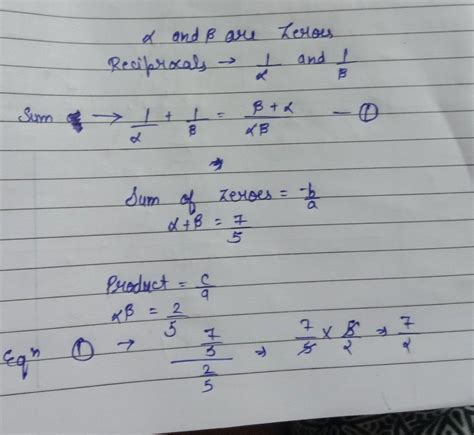 α and β are zeroes
Reciprocals → 1/α and 1/β
Sum → 1/α + 1/β = β + α/αβ — ①
Sum of zeroes = -b/a
α+β = 7/5
Product = c/a
αβ = 2/5
Eqⁿ ① → 7/5 / 2/5 → 7/5 × 5/2 → 7/2